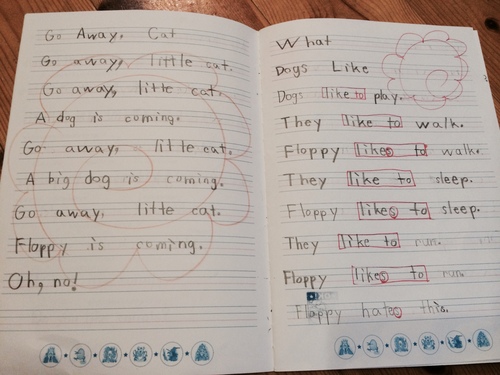 Go Away, Cat
Go away, little cat.
Go away, little cat.
A dog is coming.
Go away, little cat.
A big dog is coming.
Go away, little cat.
Floppy is coming.
Oh, no!
What
Dogs Like
Dogs like to play.
They like to walk.
Floppy likes to walk.
They like to sleep.
Floppy likes to sleep.
They like to run.
Floppy likes to run.
Floppy hates this.